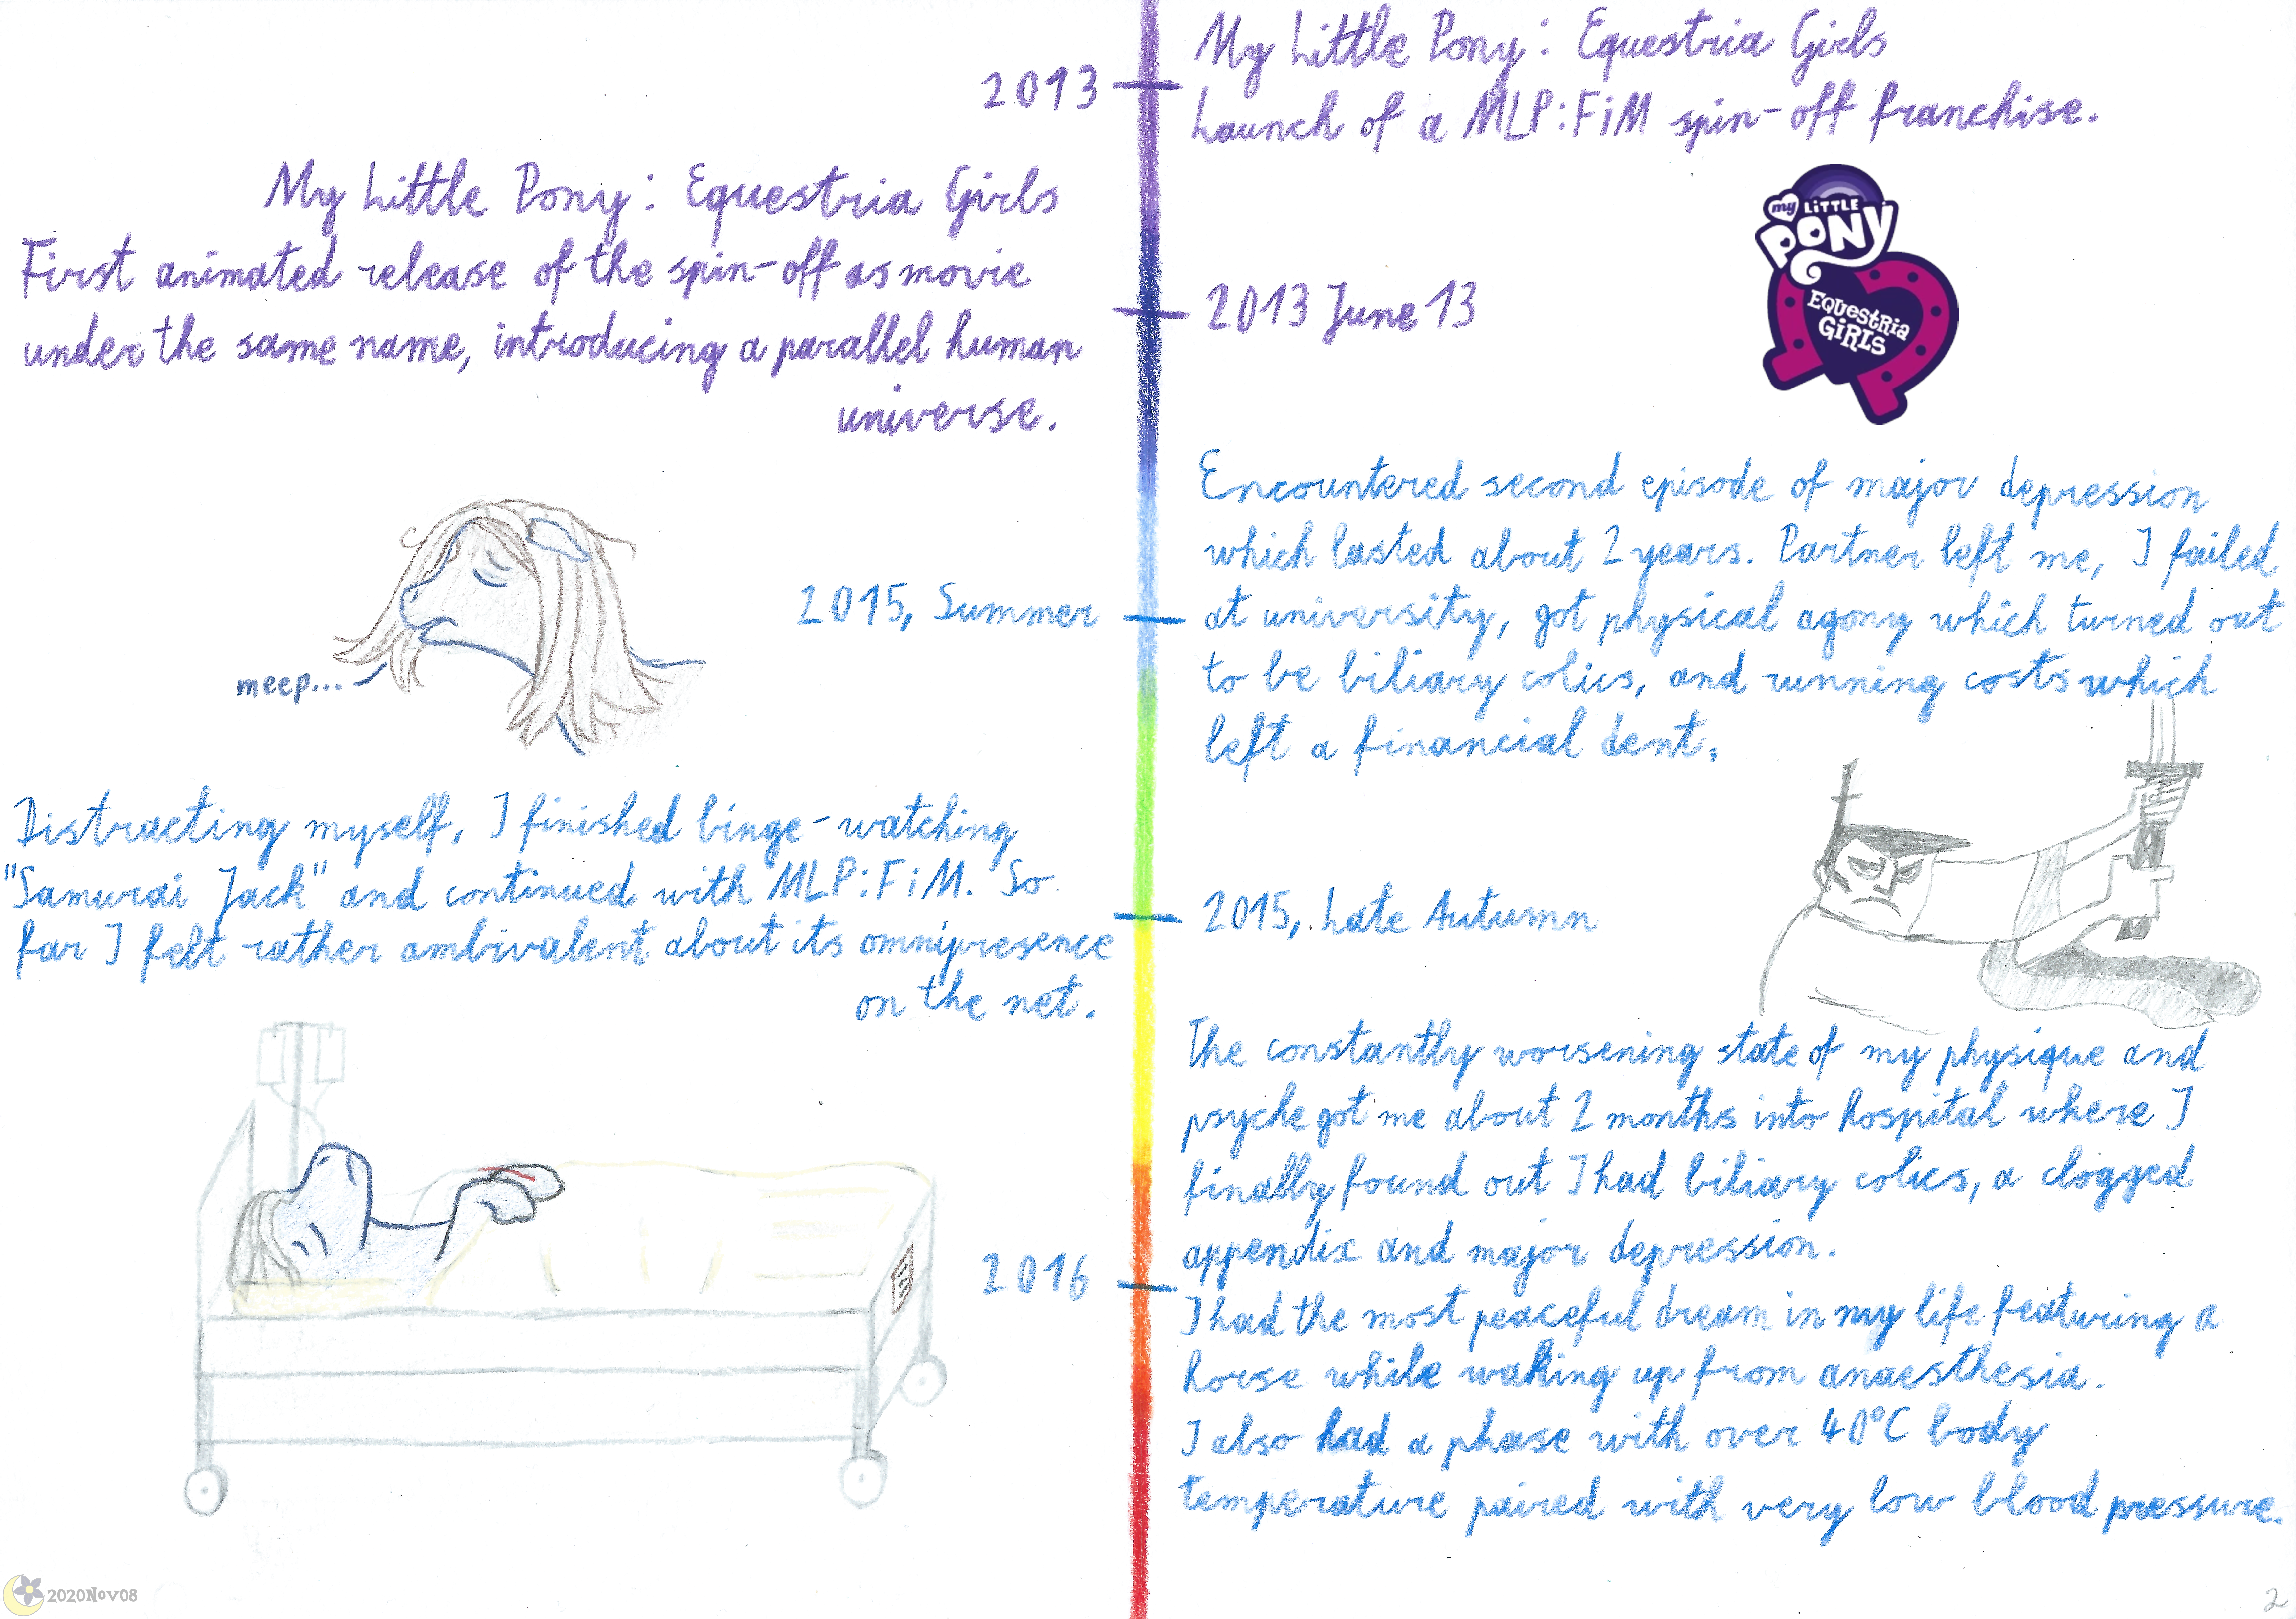 2013
My Little Pony: Equestria Girls
Launch of a MLP:FiM spin-off franchise.
My Little Pony: Equestria Girls
First animated release of the spin-off as movie
under the same name, introducing a parallel human
universe.
2013 June 13
my LiTTLE
PONY
EQUESTRiA
GiRLS
2015, Summer
Encountered second episode of major depression
which lasted about 2 years. Partner left me, I failed
at university, got physical agony which turned out
to be biliary colics, and running costs which
left a financial dent.
meep...
Distracting myself, I finished binge-watching
"Samurai Jack" and continued with MLP:FiM. So
far I felt rather ambivalent about its omnipresence
on the net.
2015, Late Autumn
2016
The constantly worsening state of my physique and
psyche got me about 2 months into hospital where I
finally found out I had biliary colics, a clogged
appendix and major depression.
I had the most peaceful dream in my life featuring a
horse while waking up from anaesthesia.
I also had a phase with over 40°C body
temperature paired with very low blood pressure.
2020Nov08
2